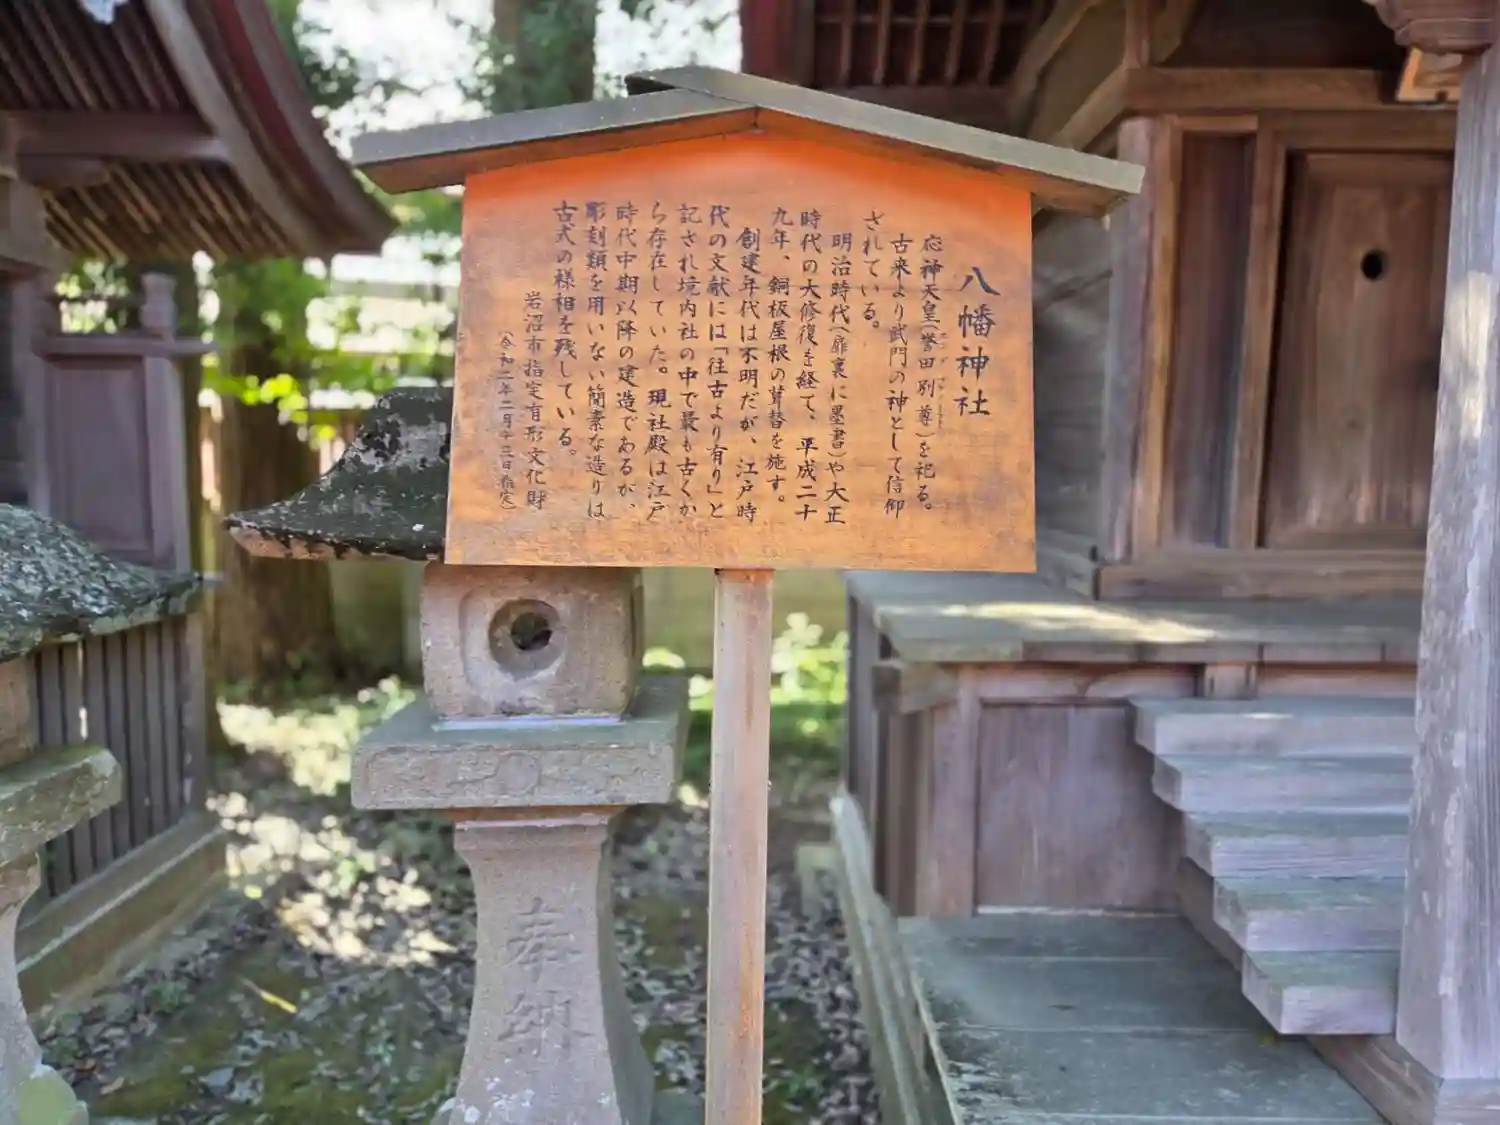 八幡神社
応神天皇(誉田別尊)を祀る。
古来より武門の神として信仰
されている。
明治時代(扉裏に墨書)や大正
時代の大修復を経て、平成二十
九年、銅板屋根の葺替を施す。
創建年代は不明だが、江戸時
代の文献には「往古より有り」と
記され境内社の中で最も古くか
ら存在していた。現社殿は江戸
時代中期以降の建造であるが、
彫刻類を用いない簡素な造りは
古式の様相を残している。
岩沼市指定有形文化財
(令和二年二月十三日指定)
奉納